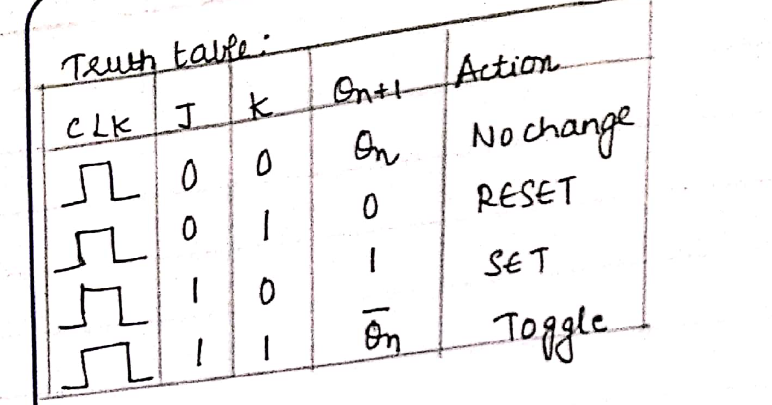 Truth table:
CLK J K Qn+1 Action
0 0 Qn No change
0 1 0 RESET
1 0 1 SET
1 1 Q̅n Toggle